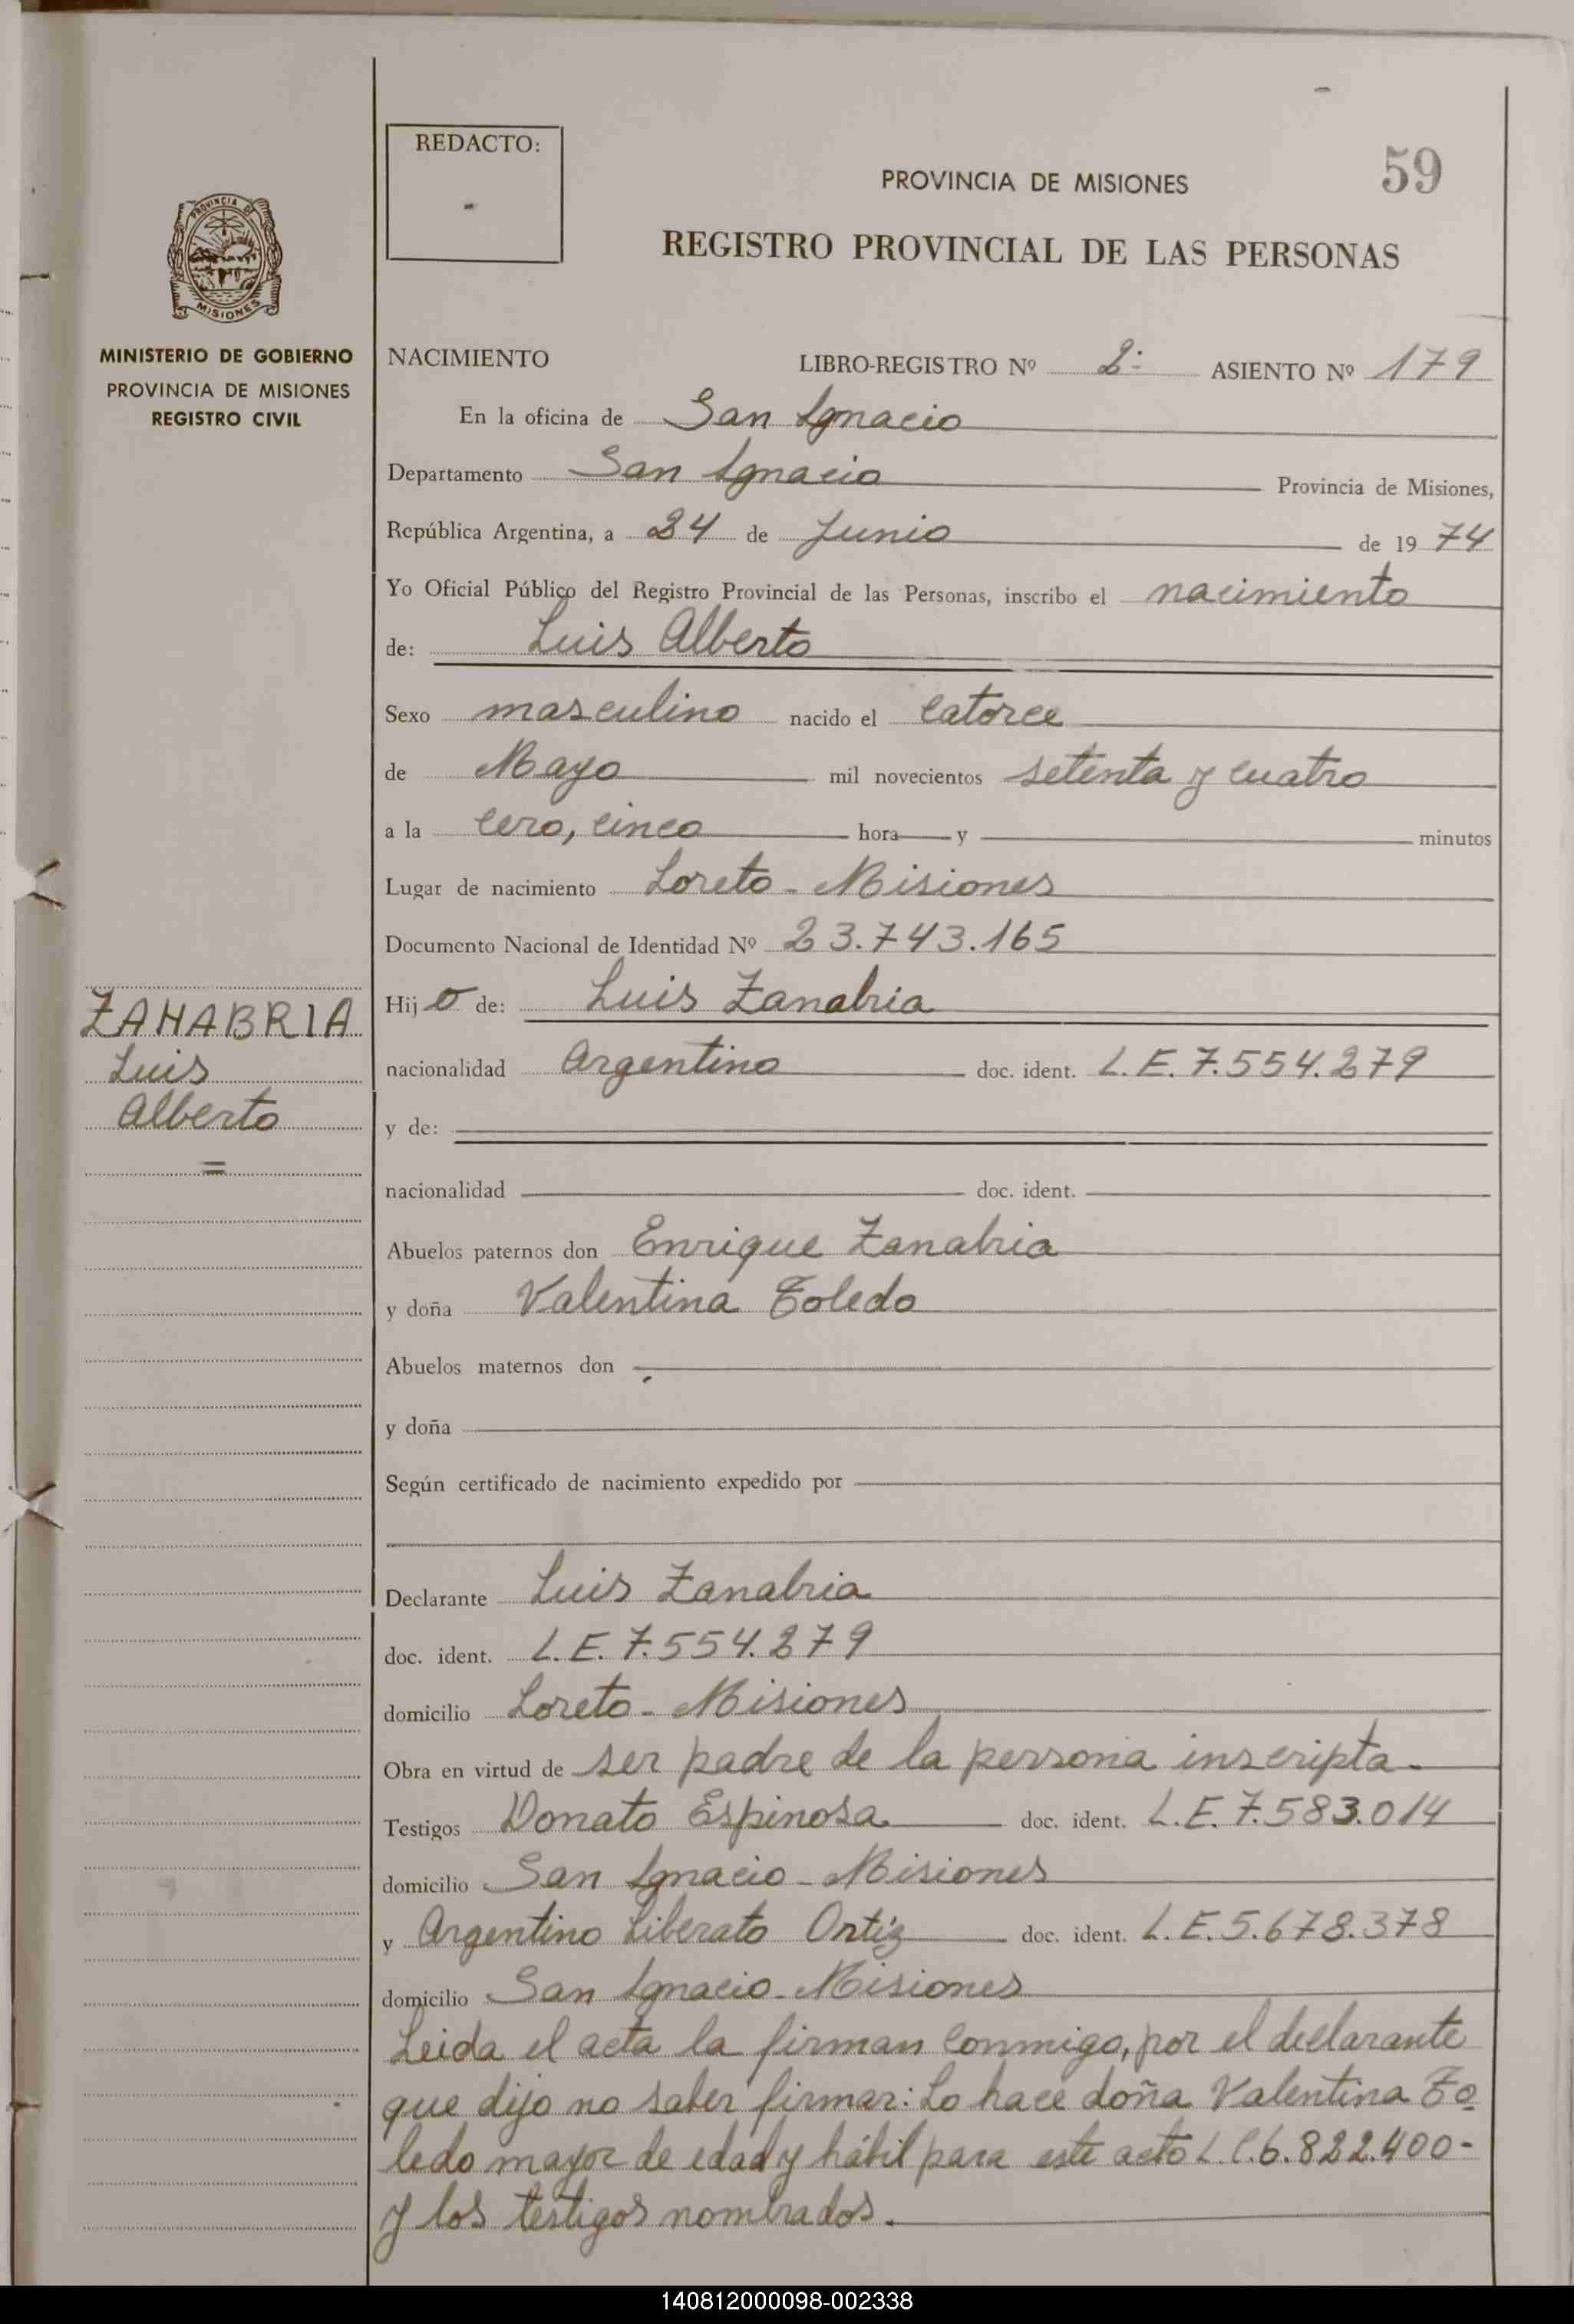 REDACTO:
-
PROVINCIA DE MISIONES
59
REGISTRO PROVINCIAL DE LAS PERSONAS
PROVINCIA DE
MISIONES
MINISTERIO DE GOBIERNO
PROVINCIA DE MISIONES
REGISTRO CIVIL
NACIMIENTO LIBRO-REGISTRO Nº 2: ASIENTO Nº 179
En la oficina de San Ignacio
Departamento San Ignacio Provincia de Misiones,
República Argentina, a 24 de Junio de 1974
Yo Oficial Público del Registro Provincial de las Personas, inscribo el nacimiento
de: Luis Alberto
Sexo masculino nacido el catorce
de Mayo mil novecientos setenta y cuatro
a la cero, cinco hora y minutos
Lugar de nacimiento Loreto - Misiones
Documento Nacional de Identidad Nº 23.743.165
ZANABRIA
Luis
Alberto
=
Hijo de: Luis Zanabria
nacionalidad Argentino doc. ident. L.E. 7.554.279
y de:
nacionalidad doc. ident.
Abuelos paternos don Enrique Zanabria
y doña Valentina Toledo
Abuelos maternos don
y doña
Según certificado de nacimiento expedido por
Declarante Luis Zanabria
doc. ident. L.E. 7.554.279
domicilio Loreto - Misiones
Obra en virtud de ser padre de la persona inscripta.
Testigos Donato Espinosa doc. ident. L.E. 7.583.014
domicilio San Ignacio - Misiones
y Argentino Liberato Ortíz doc. ident. L.E. 5.678.378
domicilio San Ignacio - Misiones
Leida el acta la firman conmigo, por el declarante
que dijo no saber firmar: Lo hace doña Valentina To
ledo mayor de edad y hábil para este acto L.C. 6.822.400-
y los testigos nombrados.
140812000098-002338